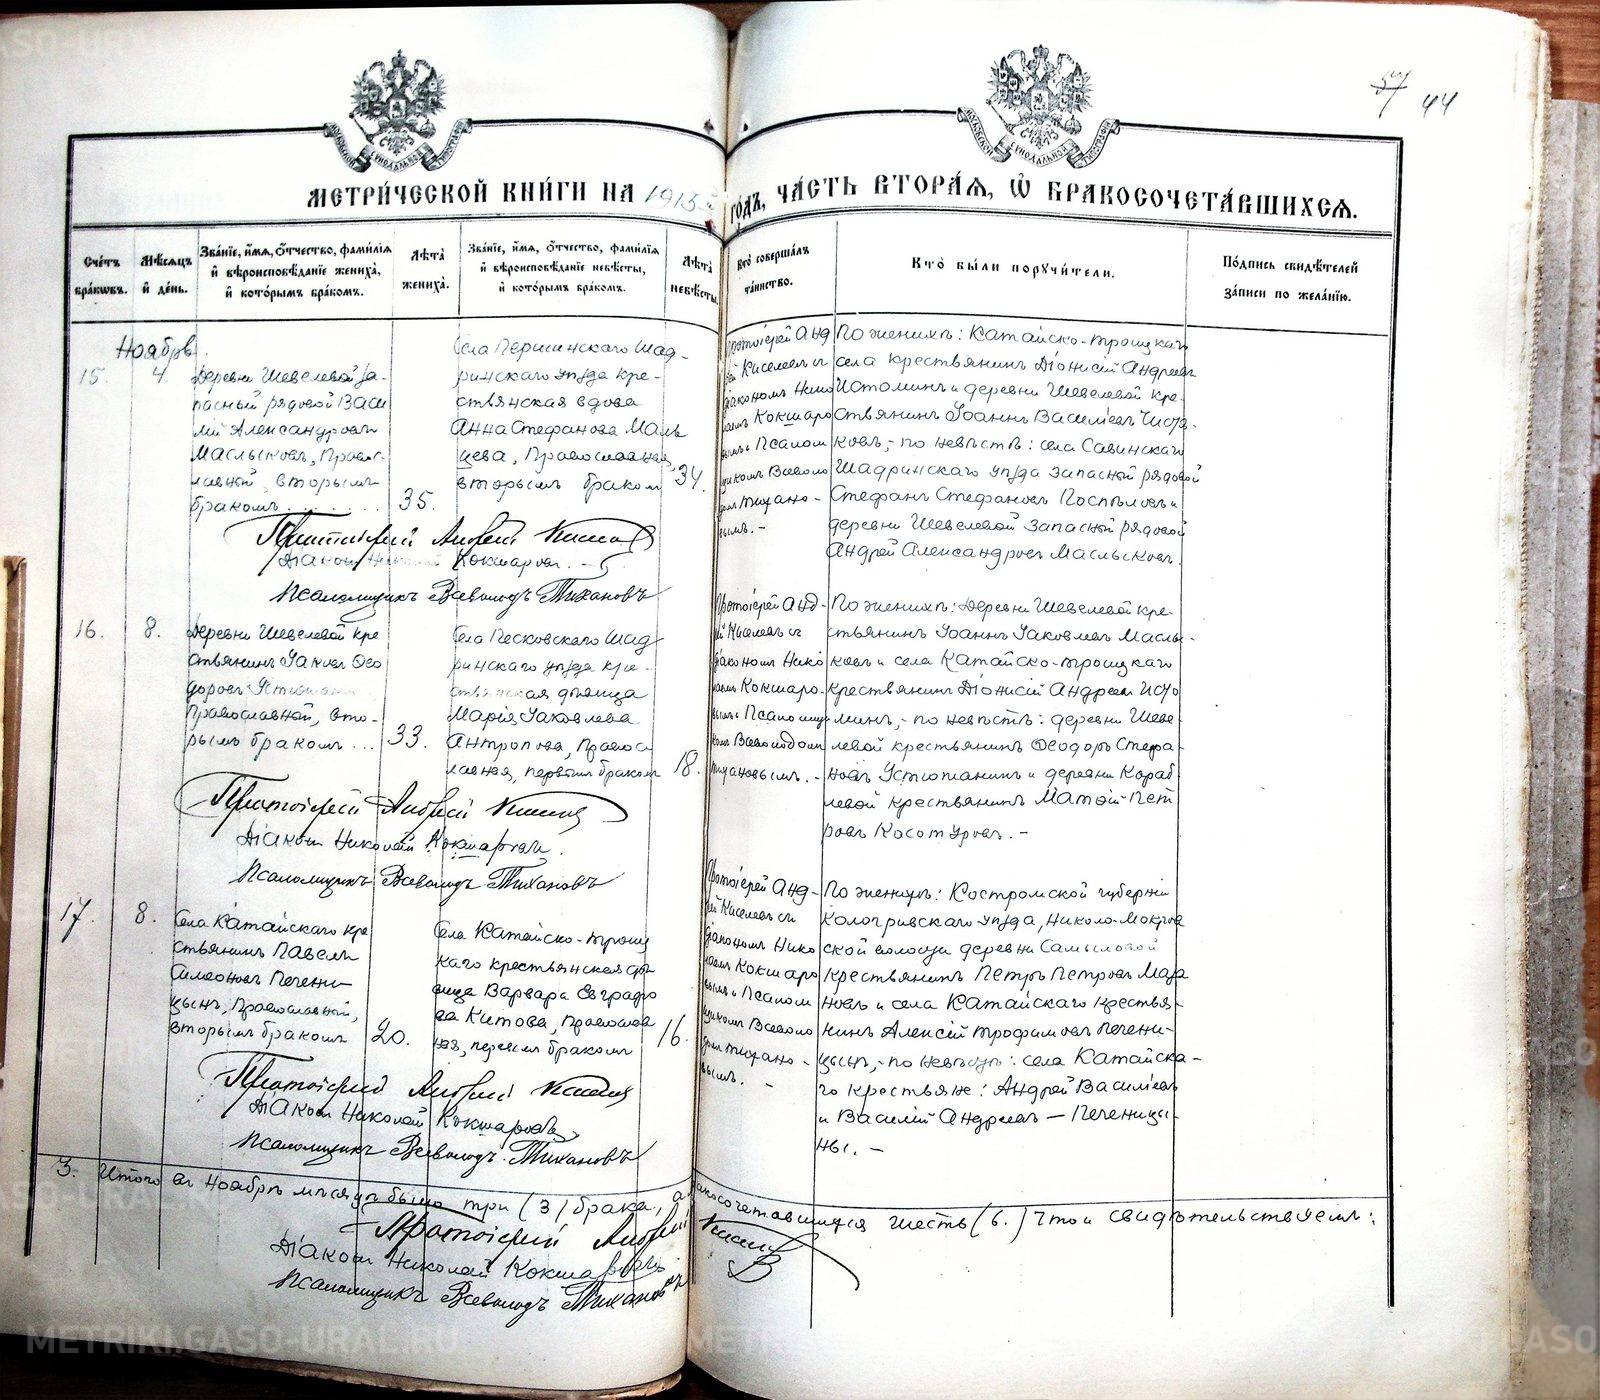 57 44
МЕТРИ́ЧЕСКОЙ КНИ́ГИ НА 1915 ГОДЪ, ЧА́СТЬ ВТОРА́Я, Ѿ БРАКОСОЧЕТА́ВШИХСЯ.
Сче́тъ бра́ковъ.
Мѣ́сяцъ и҆ де́нь.
Зва́нїе, и҆́мя, ѻ҆́тчество, фами́лїя и҆ вѣроисповѣ́данїе жениха̀, и҆ кото́рымъ бра́комъ.
Лѣ́та жениха̀.
Зва́нїе, и҆́мя, ѻ҆́тчество, фами́лїя и҆ вѣроисповѣ́данїе невѣ́сты, и҆ кото́рымъ бра́комъ.
Лѣ́та невѣ́сты.
Кто̀ соверша́лъ та́инство.
Кто̀ бы́ли порꙋчи́тели.
По́дпись свидѣ́телей за́писи по жела́нїю.
Ноябрь
15. 4.
Деревни Шевелевой за-
пасный рядовой Васи
лій Александровъ
Маслыковъ, Правос-
лавной, вторымъ
бракомъ
35.
Села Першинскаго Шад-
ринскаго уѣзда кре-
стьянская вдова
Анна Стефанова Маль
цева, Православная,
вторымъ бракомъ
34.
Протоіерей Анд
рей Киселевъ съ
діакономъ Нико
лаемъ Кокшаро
вымъ и Псалом
щикомъ Всеволо
домъ Тихано-
вымъ. -
По женихѣ: Катайско-Троицкаго
села крестьянинъ Діонисій Андреевъ
Истоминъ и деревни Шевелевой кре-
стьянинъ Іоаннъ Василіевъ Чистя-
ковъ, - по невѣстѣ: села Савинскаго
Шадринскаго уѣзда запасной рядовой
Стефанъ Стефановъ Поспѣловъ и
деревни Шевелевой запасной рядовой
Андрей Александровъ Маслыковъ.
Протоіерей Андрей Киселевъ
Діаконъ Николай Кокшаровъ.
Псаломщикъ Всеволодъ Тихановъ
16. 8.
Деревни Шевелевой кре
стьянинъ Іаковъ Ѳео
доровъ Устюжанинъ
Православной, вто-
рымъ бракомъ ...
33.
Села Песковскаго Шад
ринскаго уѣзда кре-
стьянская дѣвица
Марія Іаковлева
Антропова, Правос
лавная, первымъ бракомъ
18.
Протоіерей Анд-
рей Киселевъ съ
діакономъ Нико
лаемъ Кокшаро-
вымъ и Псаломщи
комъ Всеволодомъ
Тихановымъ. -
По женихѣ: деревни Шевелевой кре-
стьянинъ Іоаннъ Іаковлевъ Маслы-
ковъ и села Катайско-Троицкаго
крестьянинъ Діонисій Андреевъ Исто
минъ, - по невѣстѣ: деревни Шеве-
левой крестьянинъ Ѳеодоръ Стефа-
новъ Устюжанинъ и деревни Кораб
левой крестьянинъ Матѳій Пет
ровъ Косотуровъ. -
Протоіерей Андрей Киселевъ
Діаконъ Николай Кокшаровъ.
Псаломщикъ Всеволодъ Тихановъ
17. 8.
Села Катайскаго кре
стьянинъ Павелъ
Симеоновъ Печени-
цынъ, Православный,
вторымъ бракомъ
20.
Села Катайско-Троиц
каго крестьянская дѣ
вица Варвара Евграфо
ва Китова, Православ
ная, первымъ бракомъ
16.
Протоіерей Анд-
рей Киселевъ съ
діакономъ Нико
лаемъ Кокшаро
вымъ и Псалом
щикомъ Всеволо
домъ Тихано-
вымъ. -
По женихѣ: Костромской губерніи
Кологривскаго уѣзда, Николо-Мокров
ской волости деревни Самыловой
крестьянинъ Петръ Петровъ Мара
новъ и села Катайскаго крестья-
нинъ Алексій Трофимовъ Печени-
цынъ, - по невѣстѣ: села Катайска-
го крестьяне: Андрей Василіевъ
и Василій Андреевъ — Печеницы-
ны. -
Протоіерей Андрей Киселевъ
Діаконъ Николай Кокшаровъ
Псаломщикъ Всеволодъ Тихановъ
3. Итого въ Ноябрѣ мѣсяцѣ было три (3) брака, а бракосочетавшихся шесть (6.) Что и свидѣтельствуемъ:
Протоіерей Андрей Киселевъ
Діаконъ Николай Кокшаровъ
Псаломщикъ Всеволодъ Тихановъ
METRIKI.GASO-URAL.RU